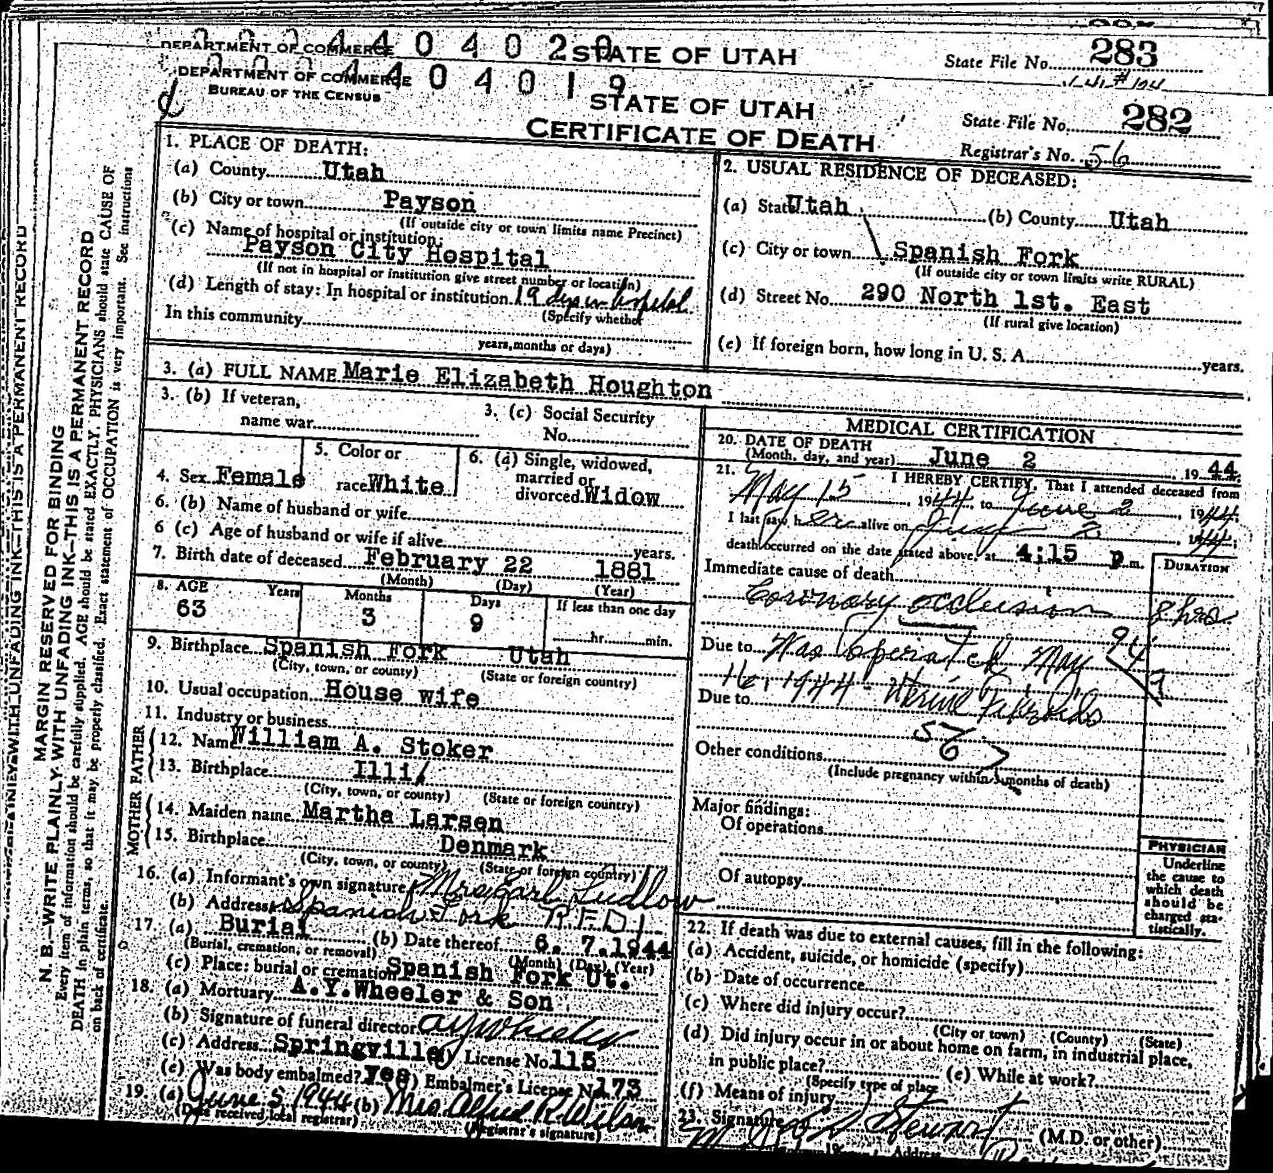 DEPARTMENT OF COMMERCE
STATE OF UTAH
State File No. 283
DEPARTMENT OF COMMERCE
BUREAU OF THE CENSUS
STATE OF UTAH
CERTIFICATE OF DEATH
State File No. 282
Registrar's No. 56
MARGIN RESERVED FOR BINDING
N. B.—WRITE PLAINLY WITH UNFADING INK—THIS IS A PERMANENT RECORD
Every item of information should be carefully supplied. AGE should be stated EXACTLY. PHYSICIANS should state CAUSE OF
DEATH in plain terms, so that it may be properly classified. Exact statement of OCCUPATION is very important. See instructions
on back of certificate.
1. PLACE OF DEATH:
(a) County Utah
(b) City or town Payson
(If outside city or town limits name Precinct)
(c) Name of hospital or institution:
Payson City Hospital
(If not in hospital or institution give street number or location)
(d) Length of stay: In hospital or institution 19 days in hospital
(Specify whether
In this community
years, months or days)
2. USUAL RESIDENCE OF DECEASED:
(a) State Utah (b) County Utah
(c) City or town Spanish Fork
(If outside city or town limits write RURAL)
(d) Street No. 290 North 1st. East
(If rural give location)
(e) If foreign born, how long in U. S. A. years.
3. (a) FULL NAME Marie Elizabeth Houghton
3. (b) If veteran, name war
3. (c) Social Security No.
4. Sex Female
5. Color or race White
6. (a) Single, widowed, married or divorced Widow
6. (b) Name of husband or wife
6 (c) Age of husband or wife if alive years.
7. Birth date of deceased February 22 1881
(Month) (Day) (Year)
8. AGE Years Months Days If less than one day
63 3 9 hr. min.
9. Birthplace Spanish Fork Utah
(City, town, or county) (State or foreign country)
10. Usual occupation House wife
11. Industry or business
FATHER
12. Name William A. Stoker
13. Birthplace Illi
(City, town, or county) (State or foreign country)
MOTHER
14. Maiden name Martha Larsen
15. Birthplace Denmark
(City, town, or county) (State or foreign country)
16. (a) Informant's own signature Mrs Earl Ludlow
(b) Address Spanish Fork R.F.D 1
17. (a) Burial (b) Date thereof 6. 7.1944
(Burial, cremation, or removal) (Month) (Day) (Year)
(c) Place: burial or cremation Spanish Fork Ut.
18. (a) Mortuary A.Y.Wheeler & Son
(b) Signature of funeral director ay wheeler
(c) Address Springville License No. 115
(e) Was body embalmed? Yes Embalmer's License No. 173
19. (a) June 5 1944 (b) Mrs. Alfred R. Wilson
(Date received local registrar) (Registrar's signature)
MEDICAL CERTIFICATION
20. DATE OF DEATH
(Month, day, and year) June 2 1944
21. I HEREBY CERTIFY, That I attended deceased from
May 15, 1944, to June 2, 1944;
I last saw her alive on June 2, 1944;
death occurred on the date stated above, at 4:15 p m.
Immediate cause of death DURATION
Coronary occlusion 8 hrs
Due to Was Operated May
16, 1944 - Uterine Fibroids
Due to
56
Other conditions
(Include pregnancy within 3 months of death)
Major findings:
Of operations
Of autopsy
PHYSICIAN
Underline the cause to which death should be charged statistically.
22. If death was due to external causes, fill in the following:
(a) Accident, suicide, or homicide (specify)
(b) Date of occurrence
(c) Where did injury occur?
(City or town) (County) (State)
(d) Did injury occur in or about home on farm, in industrial place,
in public place? (e) While at work?
(Specify type of place
(f) Means of injury
23. Signature Stewart (M.D. or other)